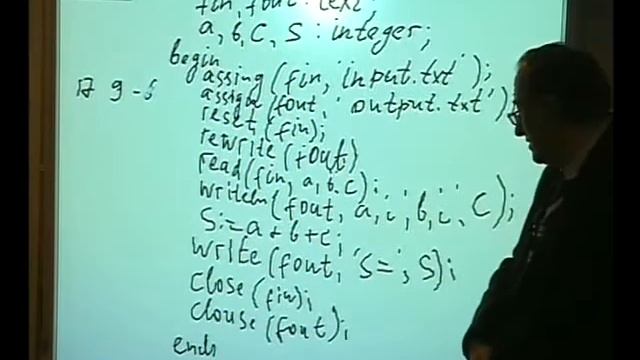 fin, fout: text;
a, b, c, s : integer;
begin
assing (fin, 'input.txt');
17 9-б assign (fout, 'output.txt');
reset (fin);
rewrite (fout)
read (fin, a, b, c);
writeln (fout, a, ' ', b, ' ', c);
s:=a+b+c;
write (fout, 's=', s);
close (fin);
clouse (fout);
end